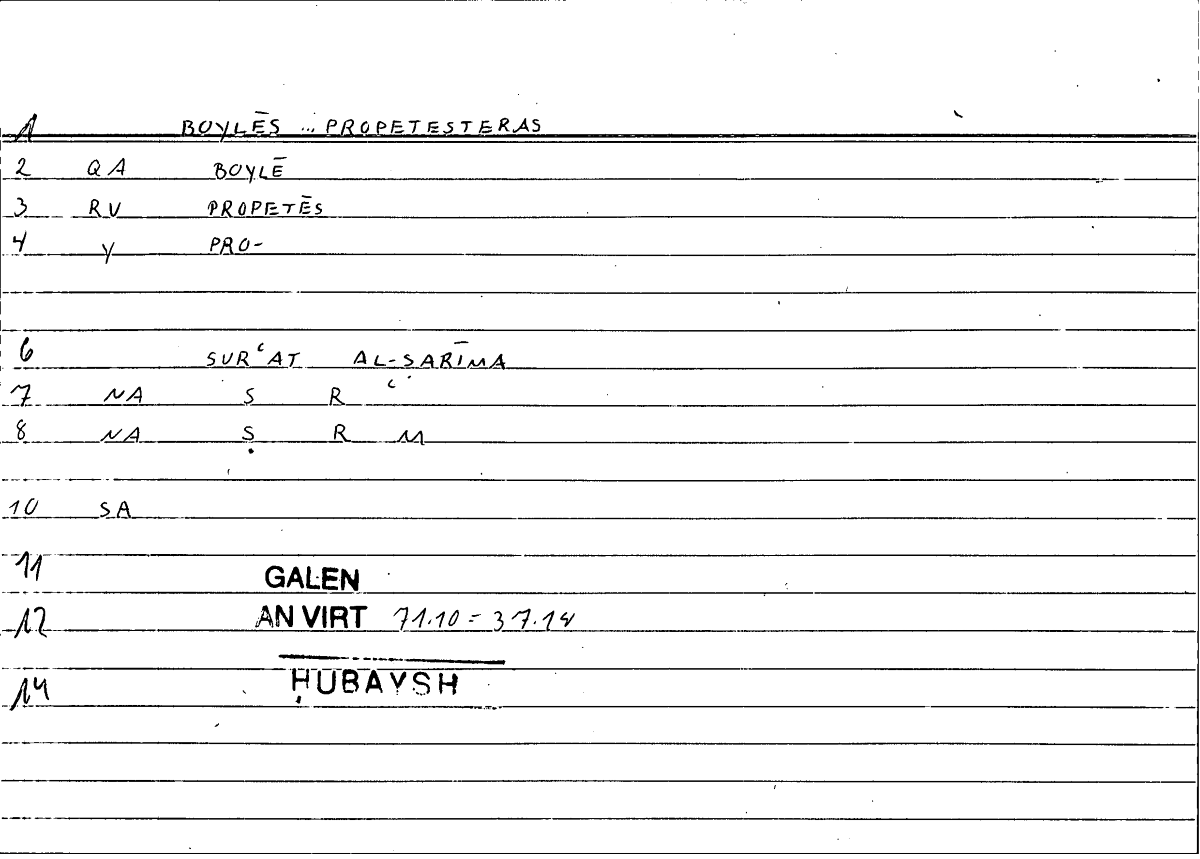 1 BOYLĒS ... PROPETESTERAS
2 QA BOYLĒ
3 RV PROPETĒS
4 Y PRO-
6 SURʿAT AL-SARĪMA
7 NA S R ʿ
8 NA Ṣ R M
10 SA
11 GALEN
12 AN VIRT 71.10 = 37.14
14 ḤUBAYSH